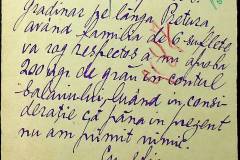 Grădinar pe lângă Pretura,
având familia de 6-suflete
vă rog respectos a-mi aproba
200 kgr. de grâu în contul
balanului, luând în consi-
derație că până în prezent
nu am primit nimic.